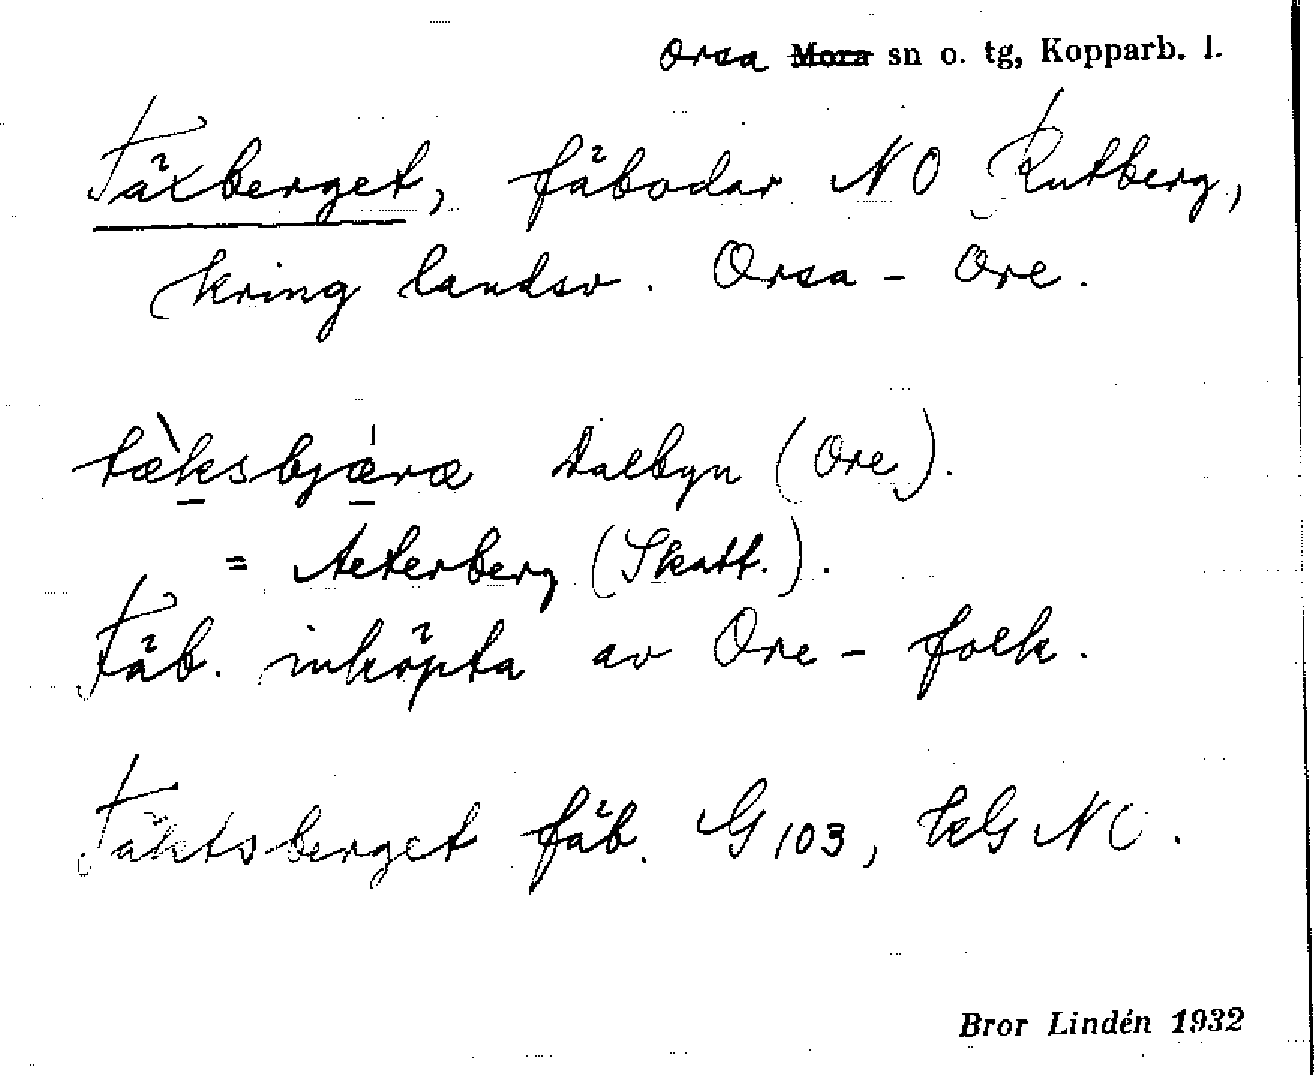 Orsa Mora sn o. tg, Kopparb. l.
Täxberget, fäbodar NO Rutberg,
kring landsv. Orsa - Ore.
tæksbjæræ Dalbyn (Ore).
= Aeterberg (Skatt.).
Fäb. inköpta av Ore - folk.
Täktsberget fäb. G 103, kG NO.
Bror Lindén 1932